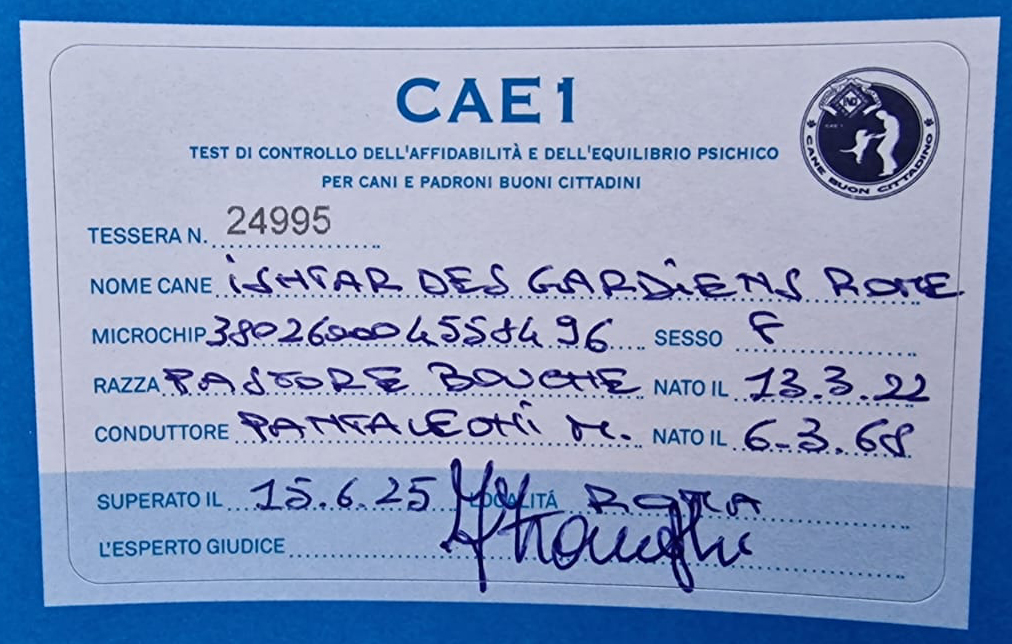 CAE1
TEST DI CONTROLLO DELL'AFFIDABILITÀ E DELL'EQUILIBRIO PSICHICO
PER CANI E PADRONI BUONI CITTADINI
CANE BUON CITTADINO
TESSERA N. 24995
NOME CANE ISHTAR DES GARDIENS ROME
MICROCHIP 380260004558496 SESSO F
RAZZA PASTORE BOUCHE NATO IL 13.3.22
CONDUTTORE PANTALEONI M. NATO IL 6.3.68
SUPERATO IL 15.6.25 LOCALITÁ ROMA
L'ESPERTO GIUDICE